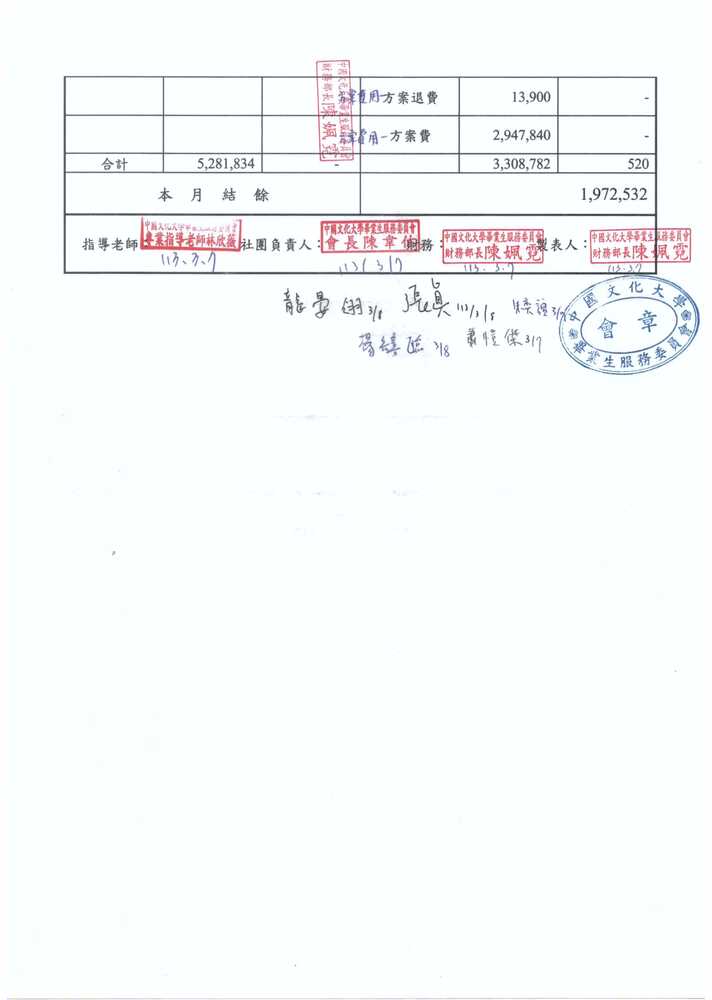 方案費用-方案退費 13,900 -
方案費用-方案費 2,947,840 -
中國文化大學畢業生服務委員會
財務部長陳姵霓
合計 5,281,834 - 3,308,782 520
本月結餘 1,972,532
指導老師 社團負責人： 財務： 製表人：
專業指導老師林欣薇
中國文化大學畢業生服務委員會
會長陳韋
中國文化大學畢業生服務委員會
財務部長陳姵霓
中國文化大學畢業生服務委員會
財務部長陳姵霓
113.3.7 113/3/7 113.3.7 113.3.7
3/8 113/3/8
3/8 3/7
中國文化大學
會章
畢業生服務委員會